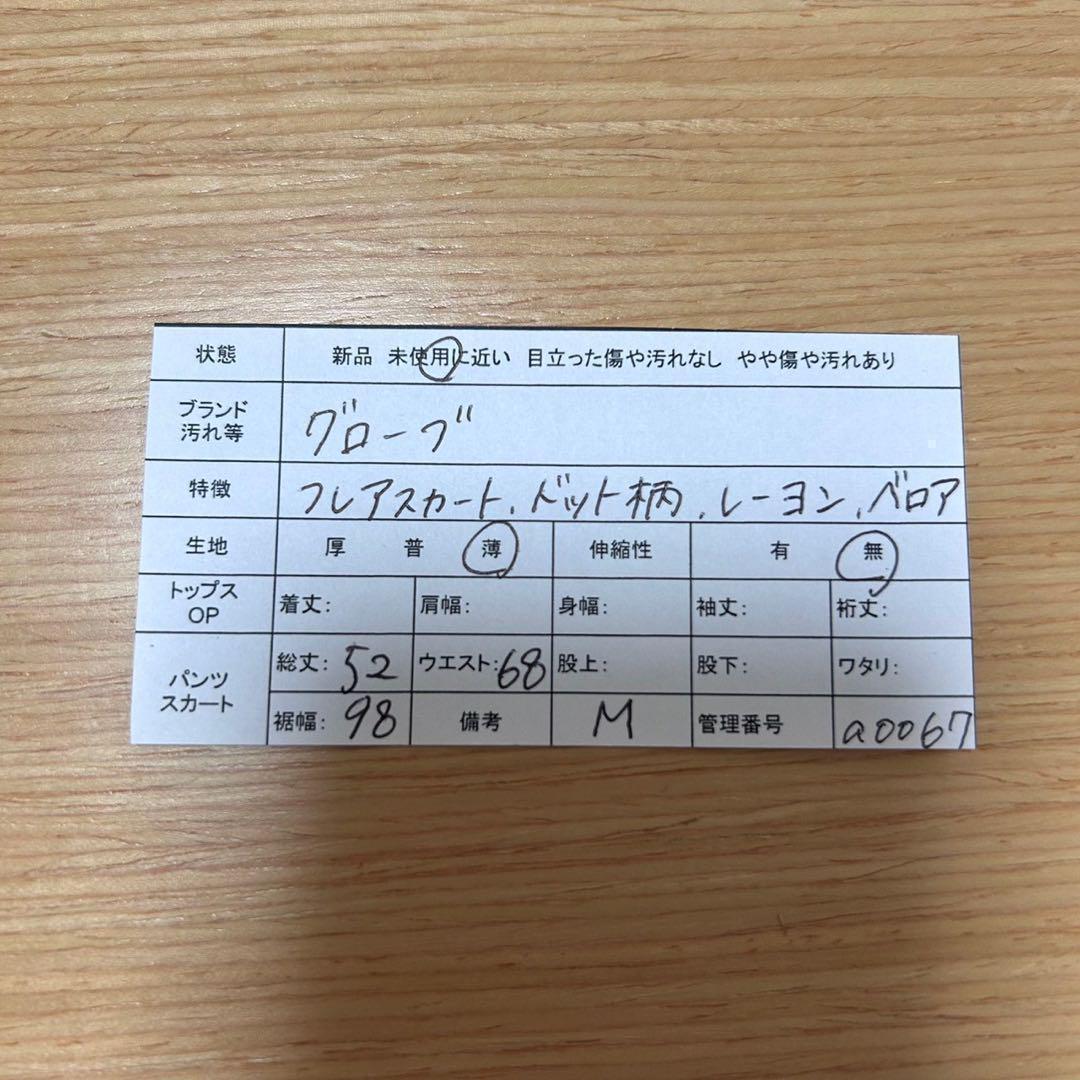 状態 新品 未使用に近い 目立った傷や汚れなし やや傷や汚れあり
ブランド
汚れ等 グローブ
特徴 フレアスカート、ドット柄、レーヨン、ベロア
生地 厚 普 薄 伸縮性 有 無
トップス
OP 着丈: 肩幅: 身幅: 袖丈: 裄丈:
パンツ
スカート 総丈: 52 ウエスト: 68 股上: 股下: ワタリ:
裾幅: 98 備考 M 管理番号 a0067